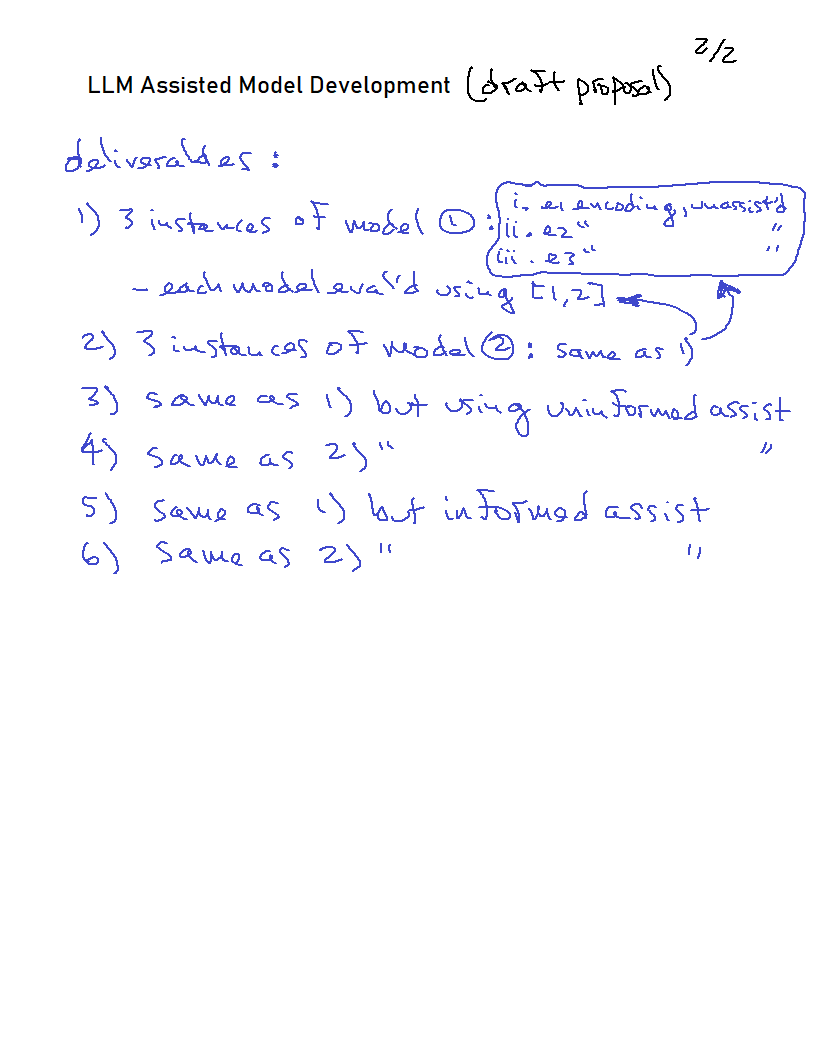 2/2
LLM Assisted Model Development (draft proposal)
deliverables :
1) 3 instances of model ① :
i. e1 encoding, unassist'd
ii. e2 " "
iii. e3 " "
- each model eval'd using [1,2]
2) 3 instances of model ② : same as 1)
3) same as 1) but using uninformed assist
4) same as 2) " "
5) same as 1) but informed assist
6) same as 2) " "